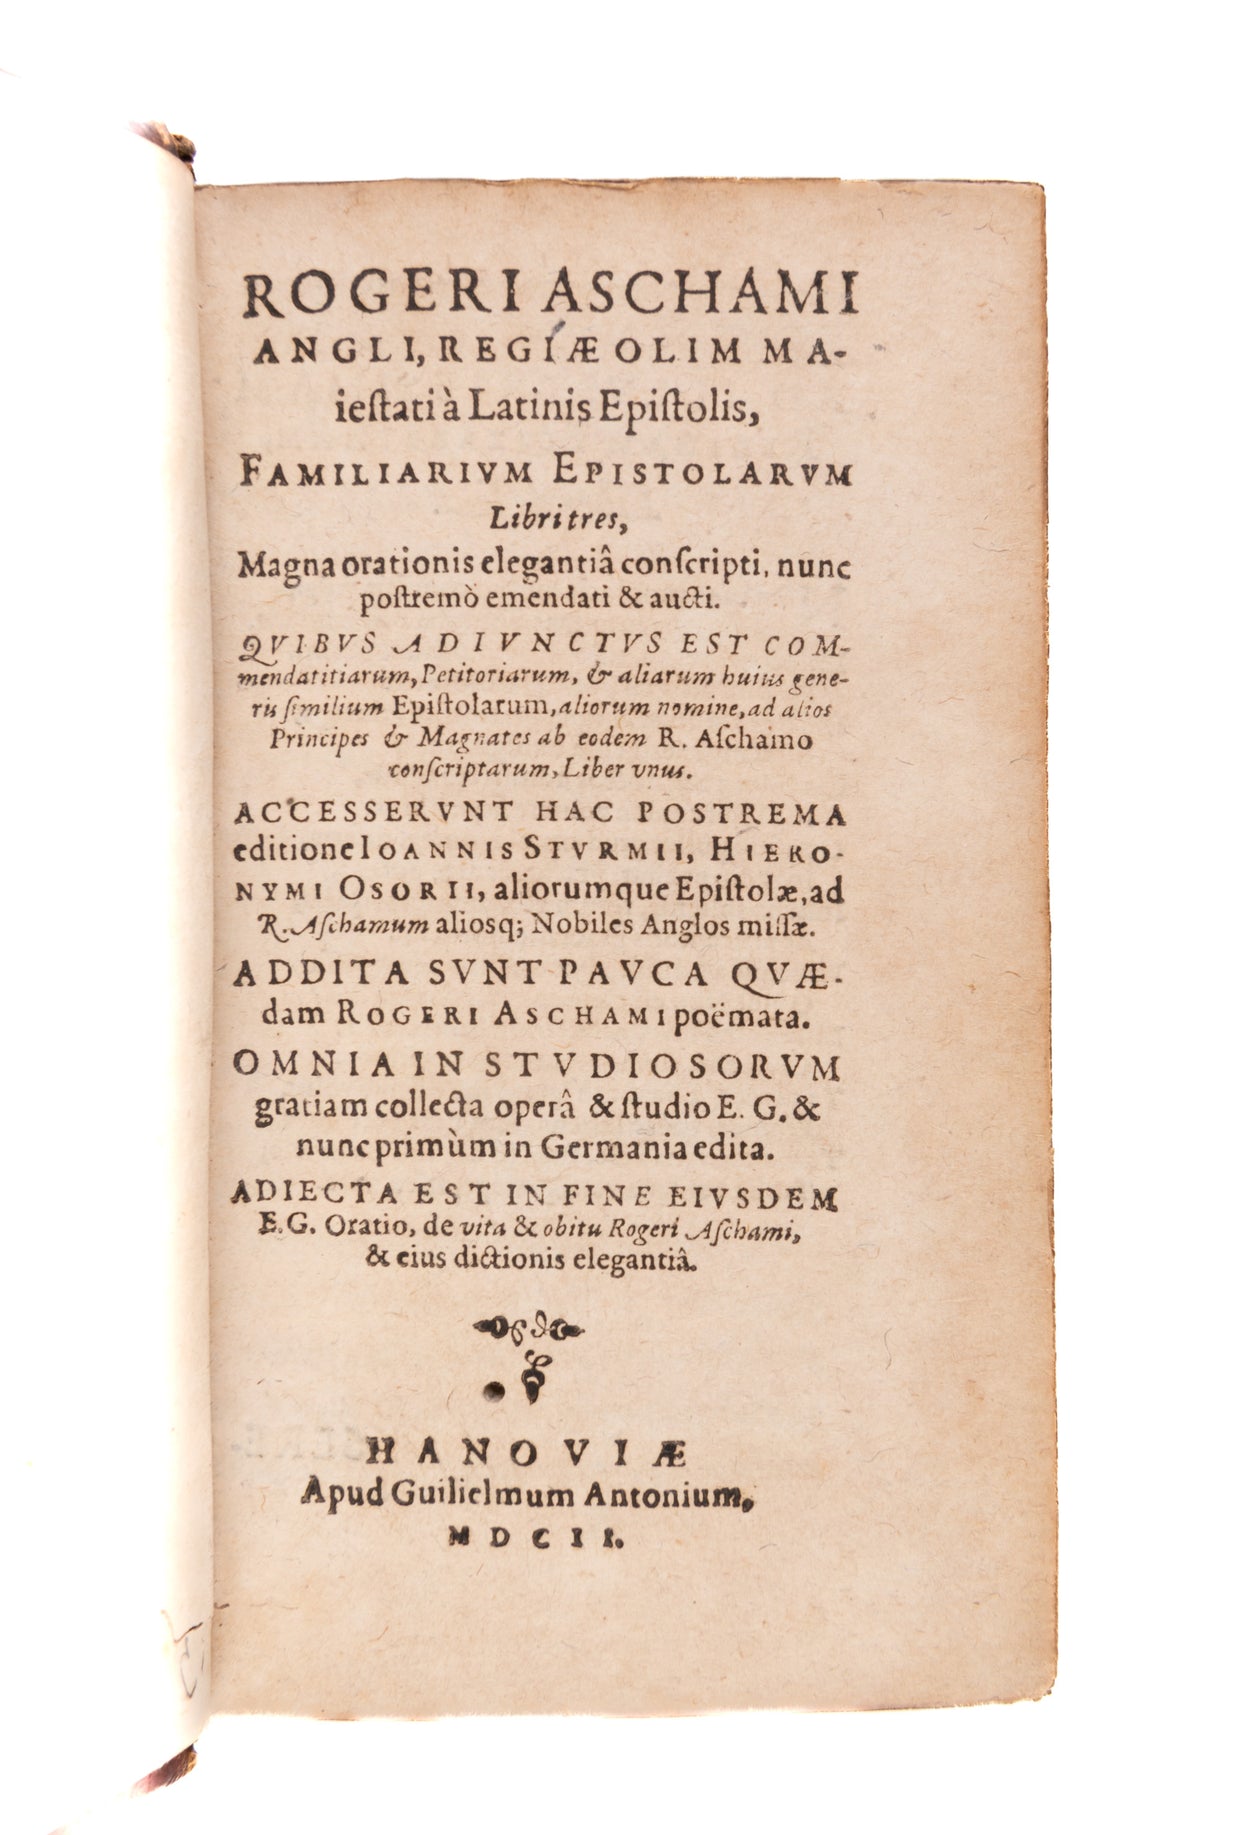 ROGERI ASCHAMI
ANGLI, REGIÆ OLIM MA-
ieſtati à Latinis Epiſtolis,
FAMILIARIVM EPISTOLARVM
Libri tres,
Magna orationis elegantiâ conſcripti, nunc
poſtremò emendati & aucti.
QVIBVS ADIVNCTVS EST COM-
mendatitiarum, Petitoriarum, & aliarum huius gene-
ris ſimilium Epiſtolarum, aliorum nomine, ad alios
Principes & Magnates ab eodem R. Aſchamo
conſcriptarum, Liber vnus.
ACCESSERVNT HAC POSTREMA
editione IOANNIS STVRMII, HIERO-
NYMI OSORII, aliorumque Epiſtolæ, ad
R. Aſchamum aliosq; Nobiles Anglos miſſæ.
ADDITA SVNT PAVCA QVÆ-
dam ROGERI ASCHAMI poëmata.
OMNIA IN STVDIOSORVM
gratiam collecta operâ & ſtudio E. G. &
nunc primùm in Germania edita.
ADIECTA EST IN FINE EIVSDEM
E. G. Oratio, de vita & obitu Rogeri Aſchami,
& eius dictionis elegantiâ.
HANOVIÆ
Apud Guilielmum Antonium,
MDCII.